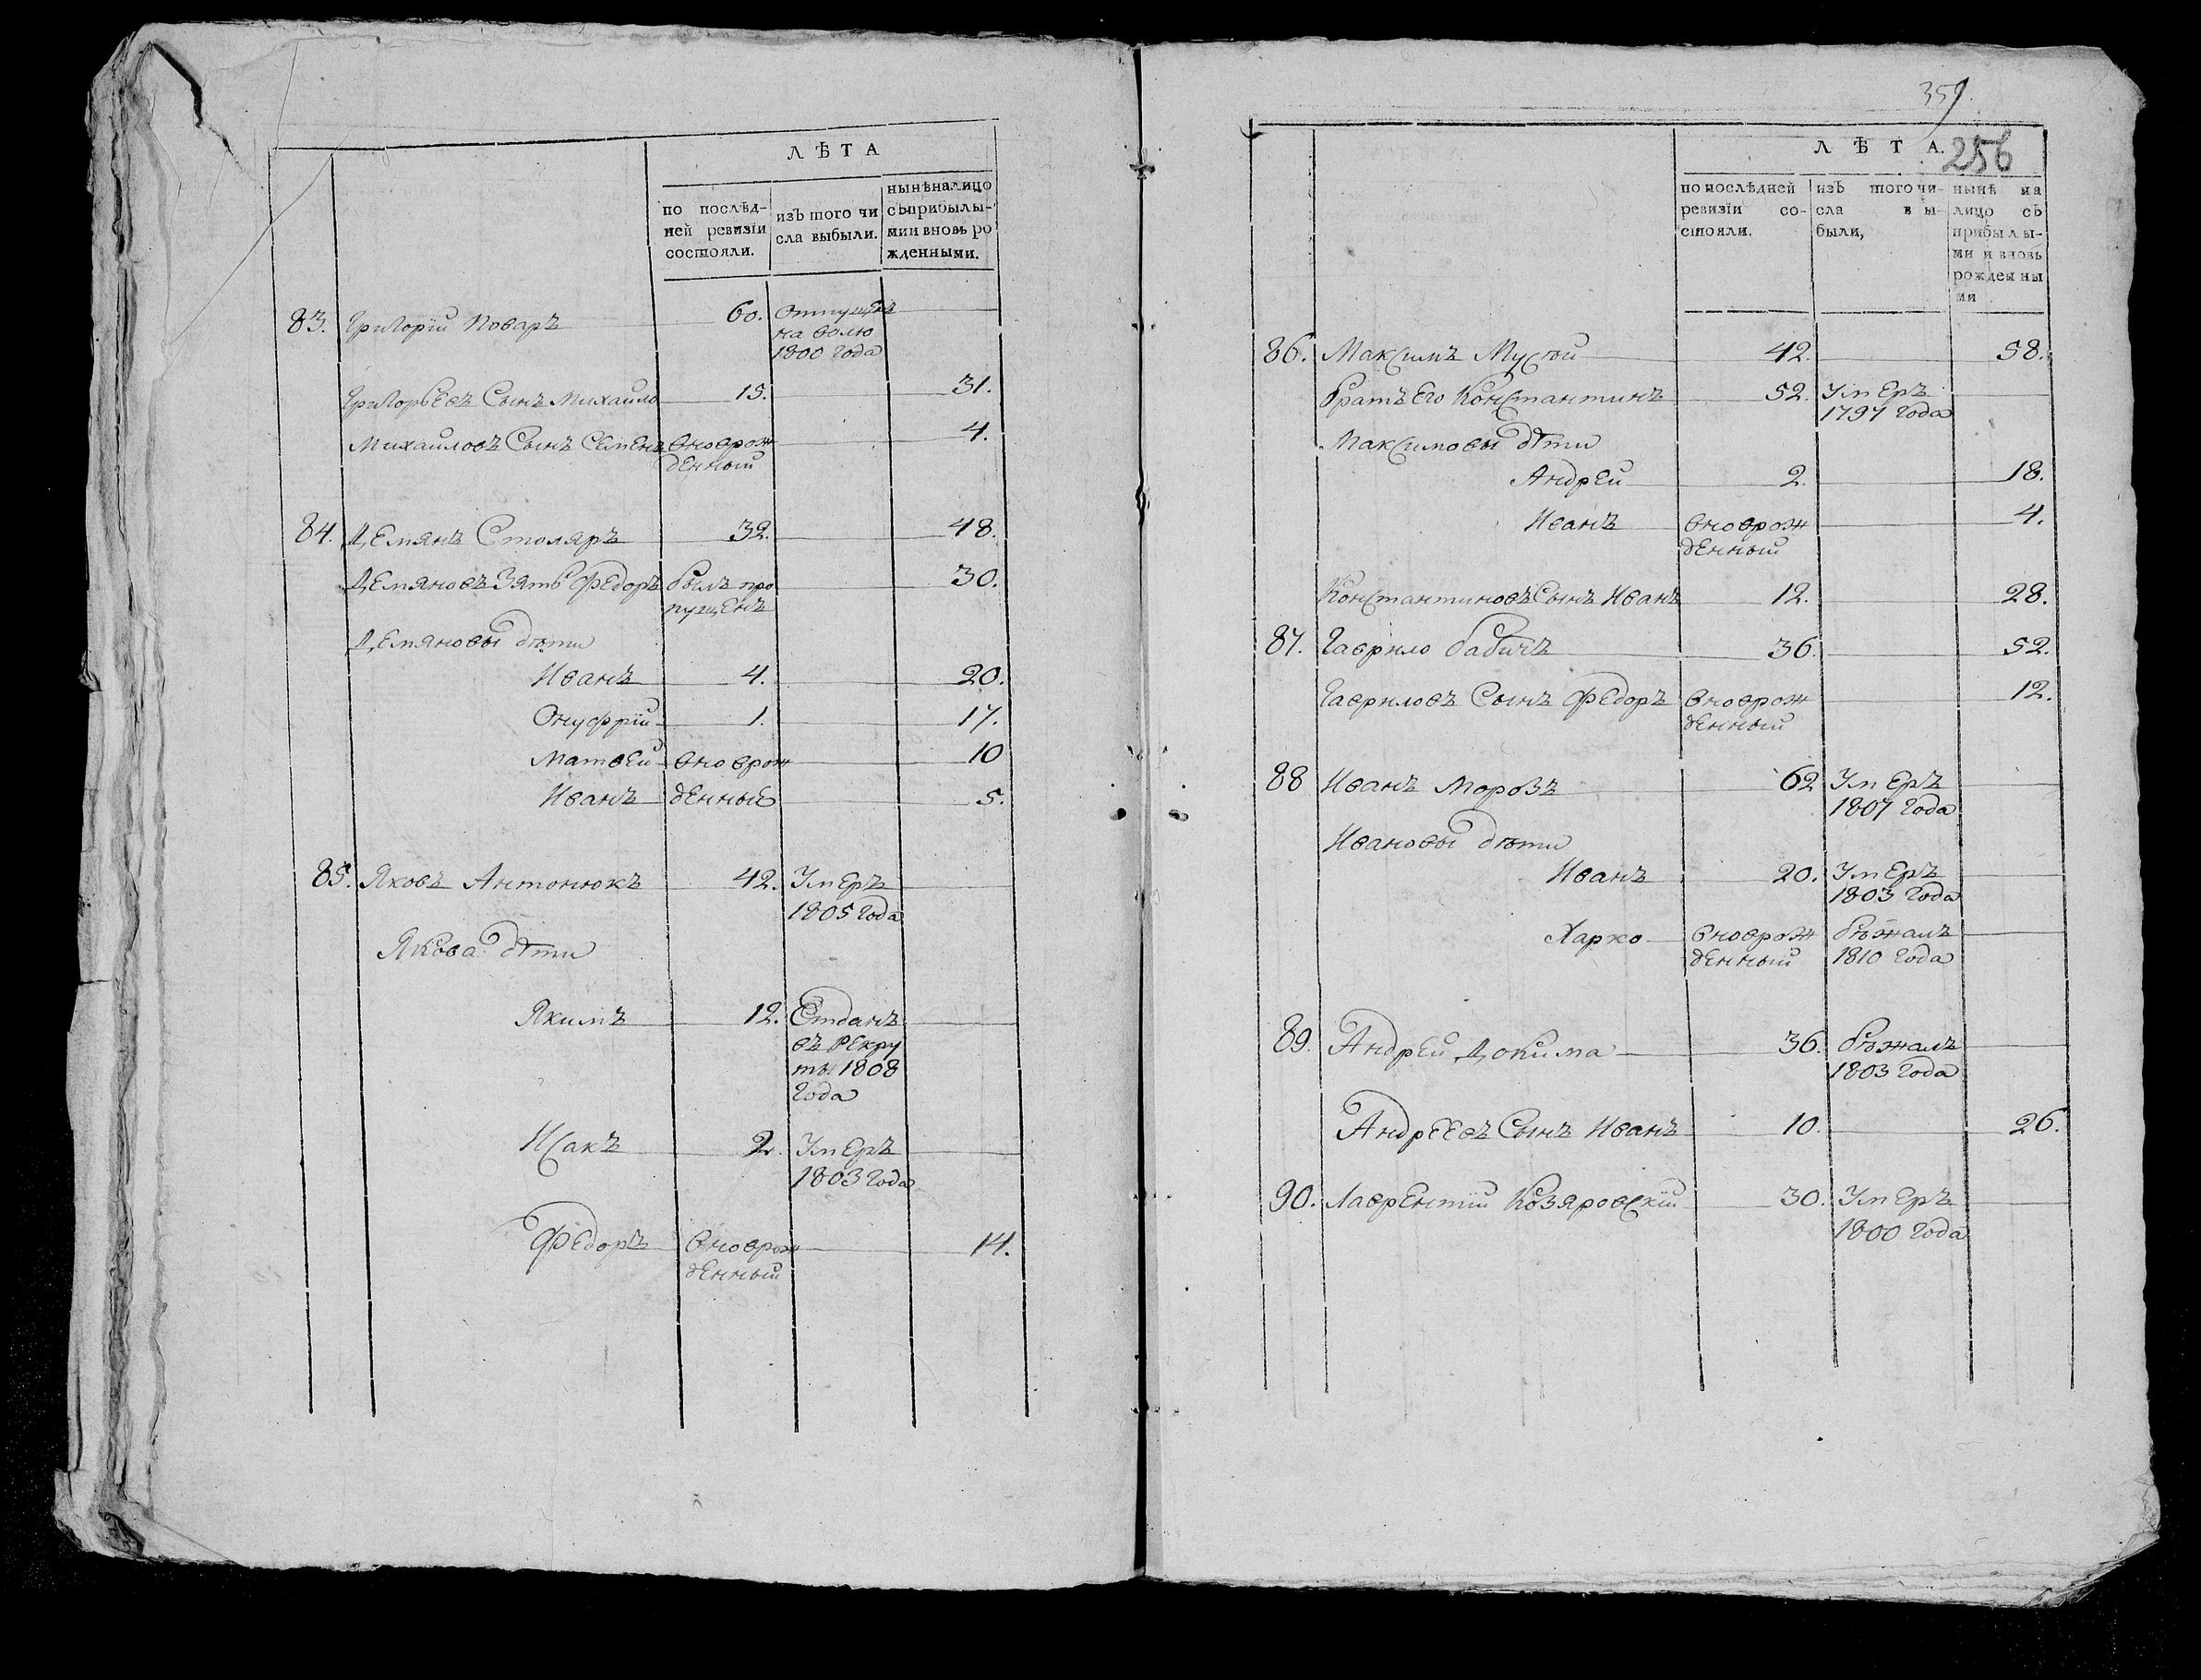 ЛѢТА
по послѣд-
ней ревизіи
состояли.
изъ того чи
сла выбыли.
нынѣ налицо
съ прибылы-
ми и вновь ро
жденными.
83. Григорій Поваръ 60. Отпущенъ
на волю
1800 года
Григорьевъ Сынъ Михайло 15. 31.
Михайловъ Сынъ Семенъ вноврож 4.
денный
84. Демянъ Столяръ 32. 48.
Демяновъ Зять Федоръ былъ про 30.
пущенъ
Демяновы дѣти
Иванъ 4. 20.
Онуфрій 1. 17.
Матвей вноврож 10
Иванъ денный 5.
85. Яковъ Антонюкъ 42. Умеръ
1805 года
Якова дѣти
Якимъ 12. Отданъ
въ рекру
ты 1808
года
Исакъ 2. Умеръ
1803 года
Федоръ вноврож 14.
денный
359.
256
ЛѢТА.
по послѣдней
ревизіи со-
стояли.
изъ того чи-
сла вы-
были,
нынѣ на
лицо съ
прибылы-
ми и вновь
рожденны
ми
86. Максимъ Мусій 42. 58.
Братъ Его Константинъ 52. Умеръ
1797 года
Максимовы дѣти
Андрей 2. 18.
Иванъ вноврож 4.
денный
Константиновъ Сынъ Иванъ 12. 28.
87. Гаврило Бабичъ 36. 52.
Гавриловъ Сынъ Федоръ вноврож 12.
денный
88 Иванъ Морозъ 62 Умеръ
1807 года
Ивановы дѣти
Иванъ 20. Умеръ
1803 года
Харко вноврож бѣжалъ
денный 1810 года
89. Андрей Докима 36. бѣжалъ
1803 года
Андреевъ Сынъ Иванъ 10. 26.
90. Лаврентій Козяровскій 30. Умеръ
1800 года